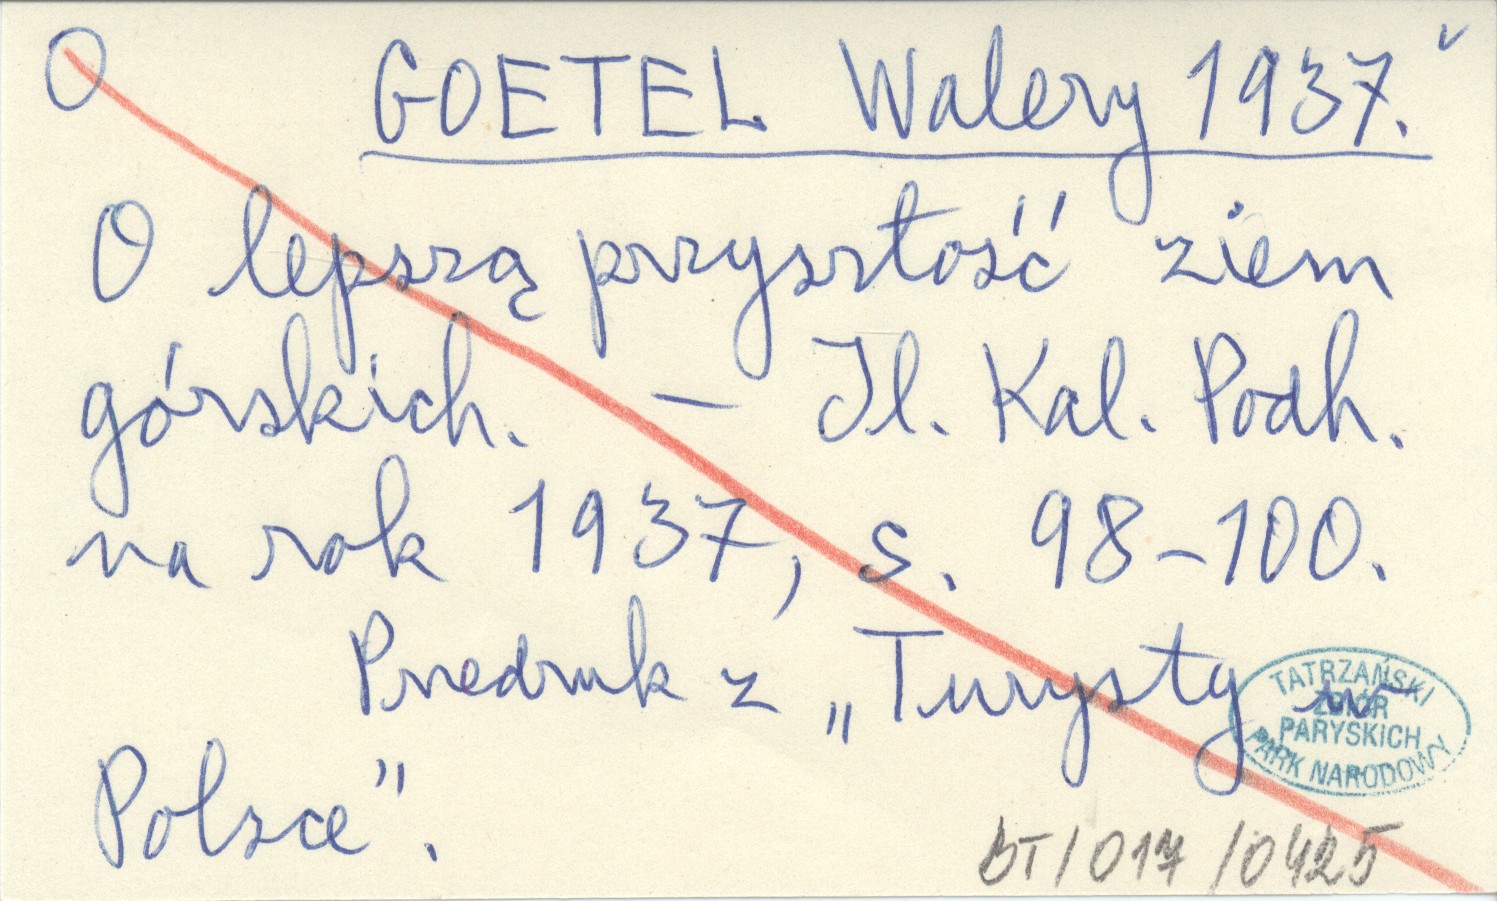 O GOETEL Walery 1937.
O lepszą przyszłość ziem
górskich. – Il. Kal. Podh.
na rok 1937, s. 98-100.
Przedruk z „Turysty w
Polsce".
TATRZAŃSKI
ZBIÓR
PARYSKICH
PARK NARODOWY
BT/017/0425